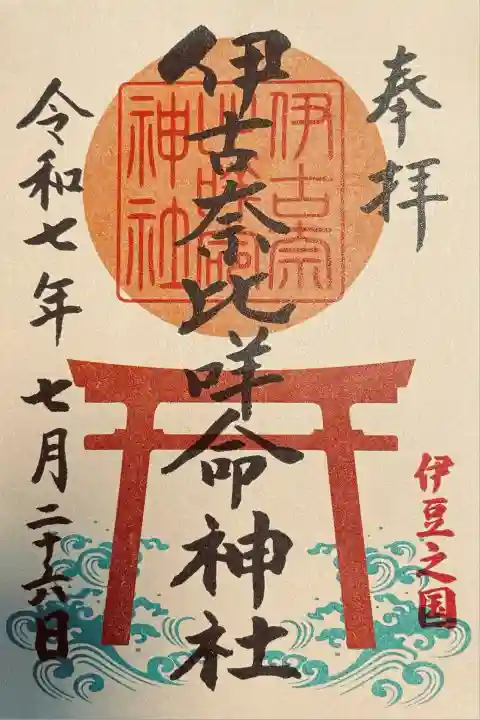 奉拝
伊古奈比咩命神社
伊古奈
比咩命
神社
令和七年 七月二十六日
伊豆之国